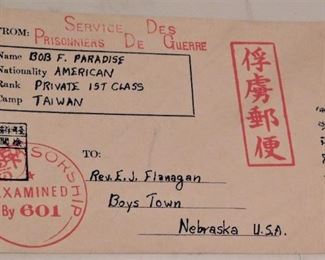 FROM: SERVICE DES
PRISONNIERS DE GUERRE
Name BOB F. PARADISE
Nationality AMERICAN
Rank PRIVATE 1ST CLASS
Camp TAIWAN
俘虜郵便
CENSORSHIP
EXAMINED
By 601
TO:
Rev. E. J. Flanagan
Boys Town
Nebraska U.S.A.